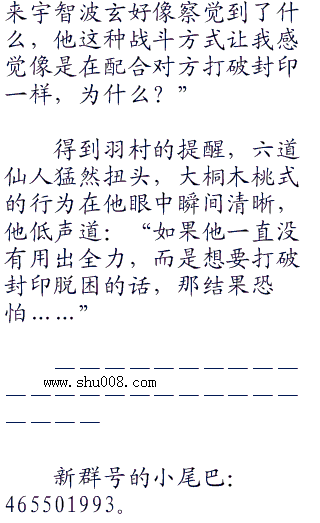 来宇智波玄好像察觉到了什
么，他这种战斗方式让我感
觉像是在配合对方打破封印
一样，为什么？”
得到羽村的提醒，六道
仙人猛然扭头，大桐木桃式
的行为在他眼中瞬间清晰，
他低声道：“如果他一直没
有用出全力，而是想要打破
封印脱困的话，那结果恐
怕……”
－－－－－－－－－－
www.shu008.com
－－－－－－－－－－－－
－－－－
新群号的小尾巴：
465501993。